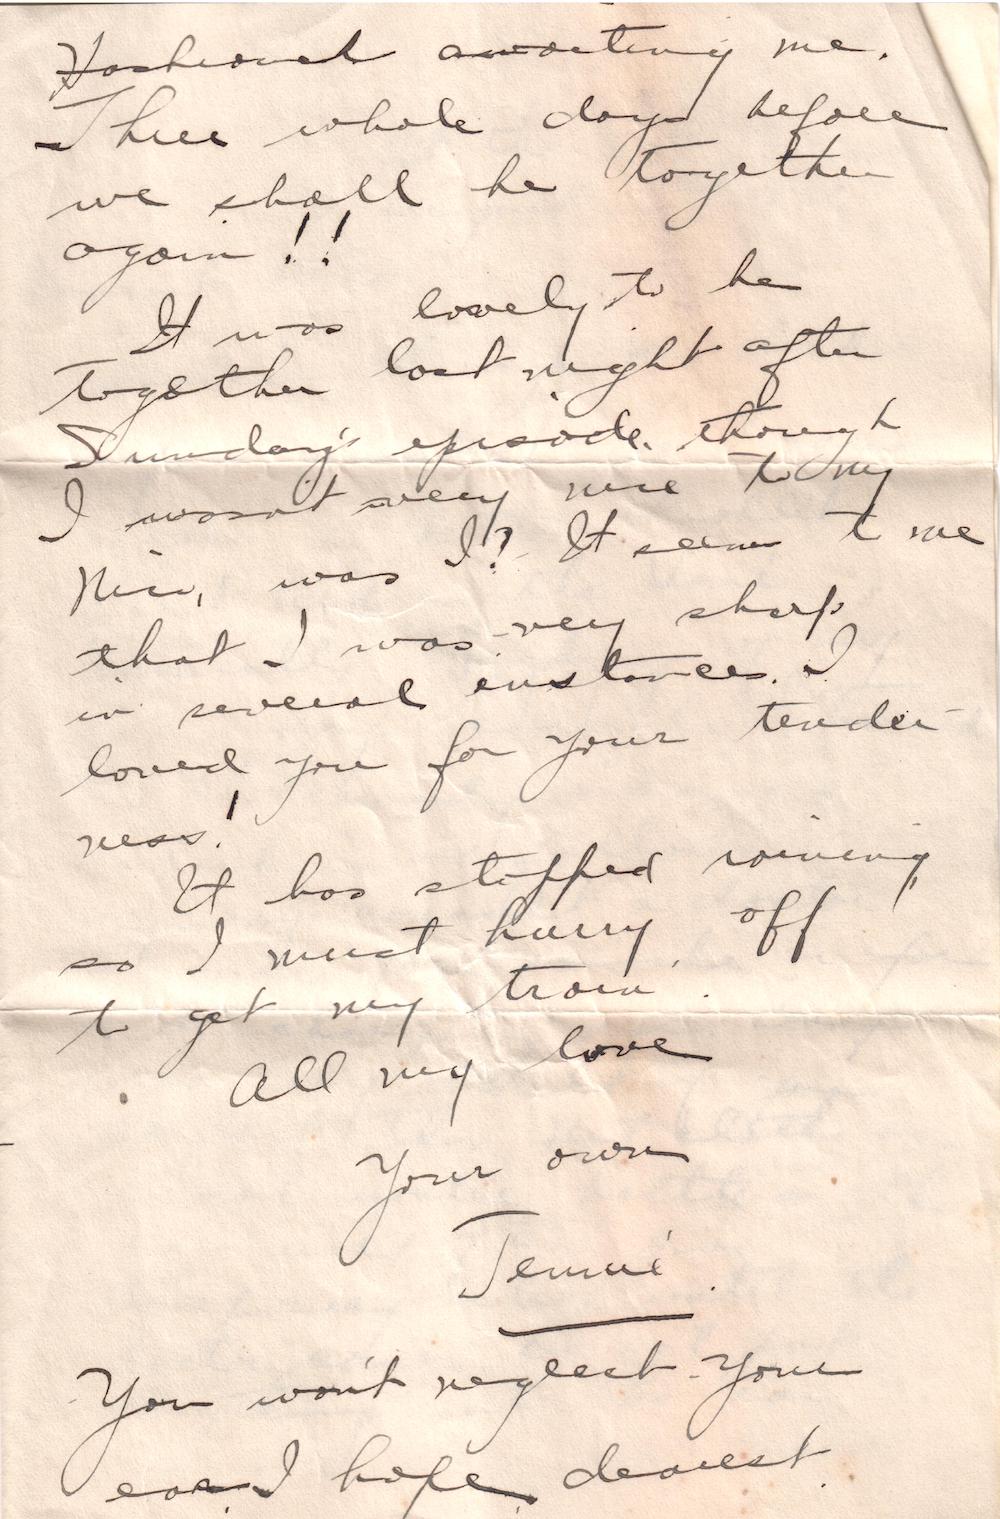 awaiting me.
Three whole days before
we shall be together
again!!
It was lovely to be
together last night after
Sunday's episode, though
I wasn't very nice to my
was I? It seems to me
that I was very sharp
in several instances. I
loved you for your tender
ness!
It has stopped raining
so I must hurry off
to get my train.
All my love
Your own
Jennie.
You won't neglect your
I hope, dearest.